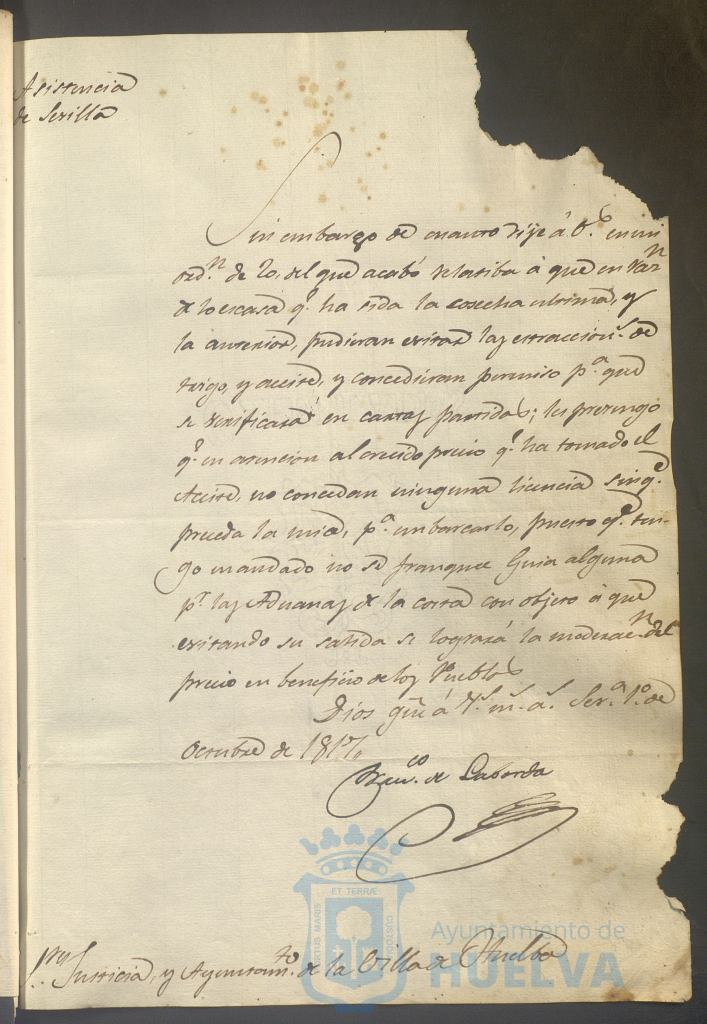 Asistencia
de Sevilla
Sin embargo de quanto dije á V.s en mi
ord.n de 20, del que acabó relatiba á que en raz.n
de lo escasa q.e ha sida la cosecha ultima, y
la anterior, pudieran evitar las extraccion.s de
trigo, y aceite, y concedieran permiso p.a que
se verificasa en cortas partidas; les prevengo
q.e en atencion al crecido precio q.e ha tomado el
Aceite, no concedan ninguna licencia sin q.e
preceda la mia, p.a embarcarlo, puesto q.e ten-
go mandado no se franquee Guia alguna
p.r las Aduanas de la costa con objeto á que
evitando su salida se logrará la moderac.n del
precio en beneficio de los Pueblos
Dios gũe á V.s m.s a.s Sev.a 1.o de
Octubre de 1817,,
Fran.co de Laborda
S.res Justicia, y Ayuntam.to de la Villa de Huelba
PORTUS MARIS
ET TERRÆ
CUSTODIA
Ayuntamiento de
HUELVA